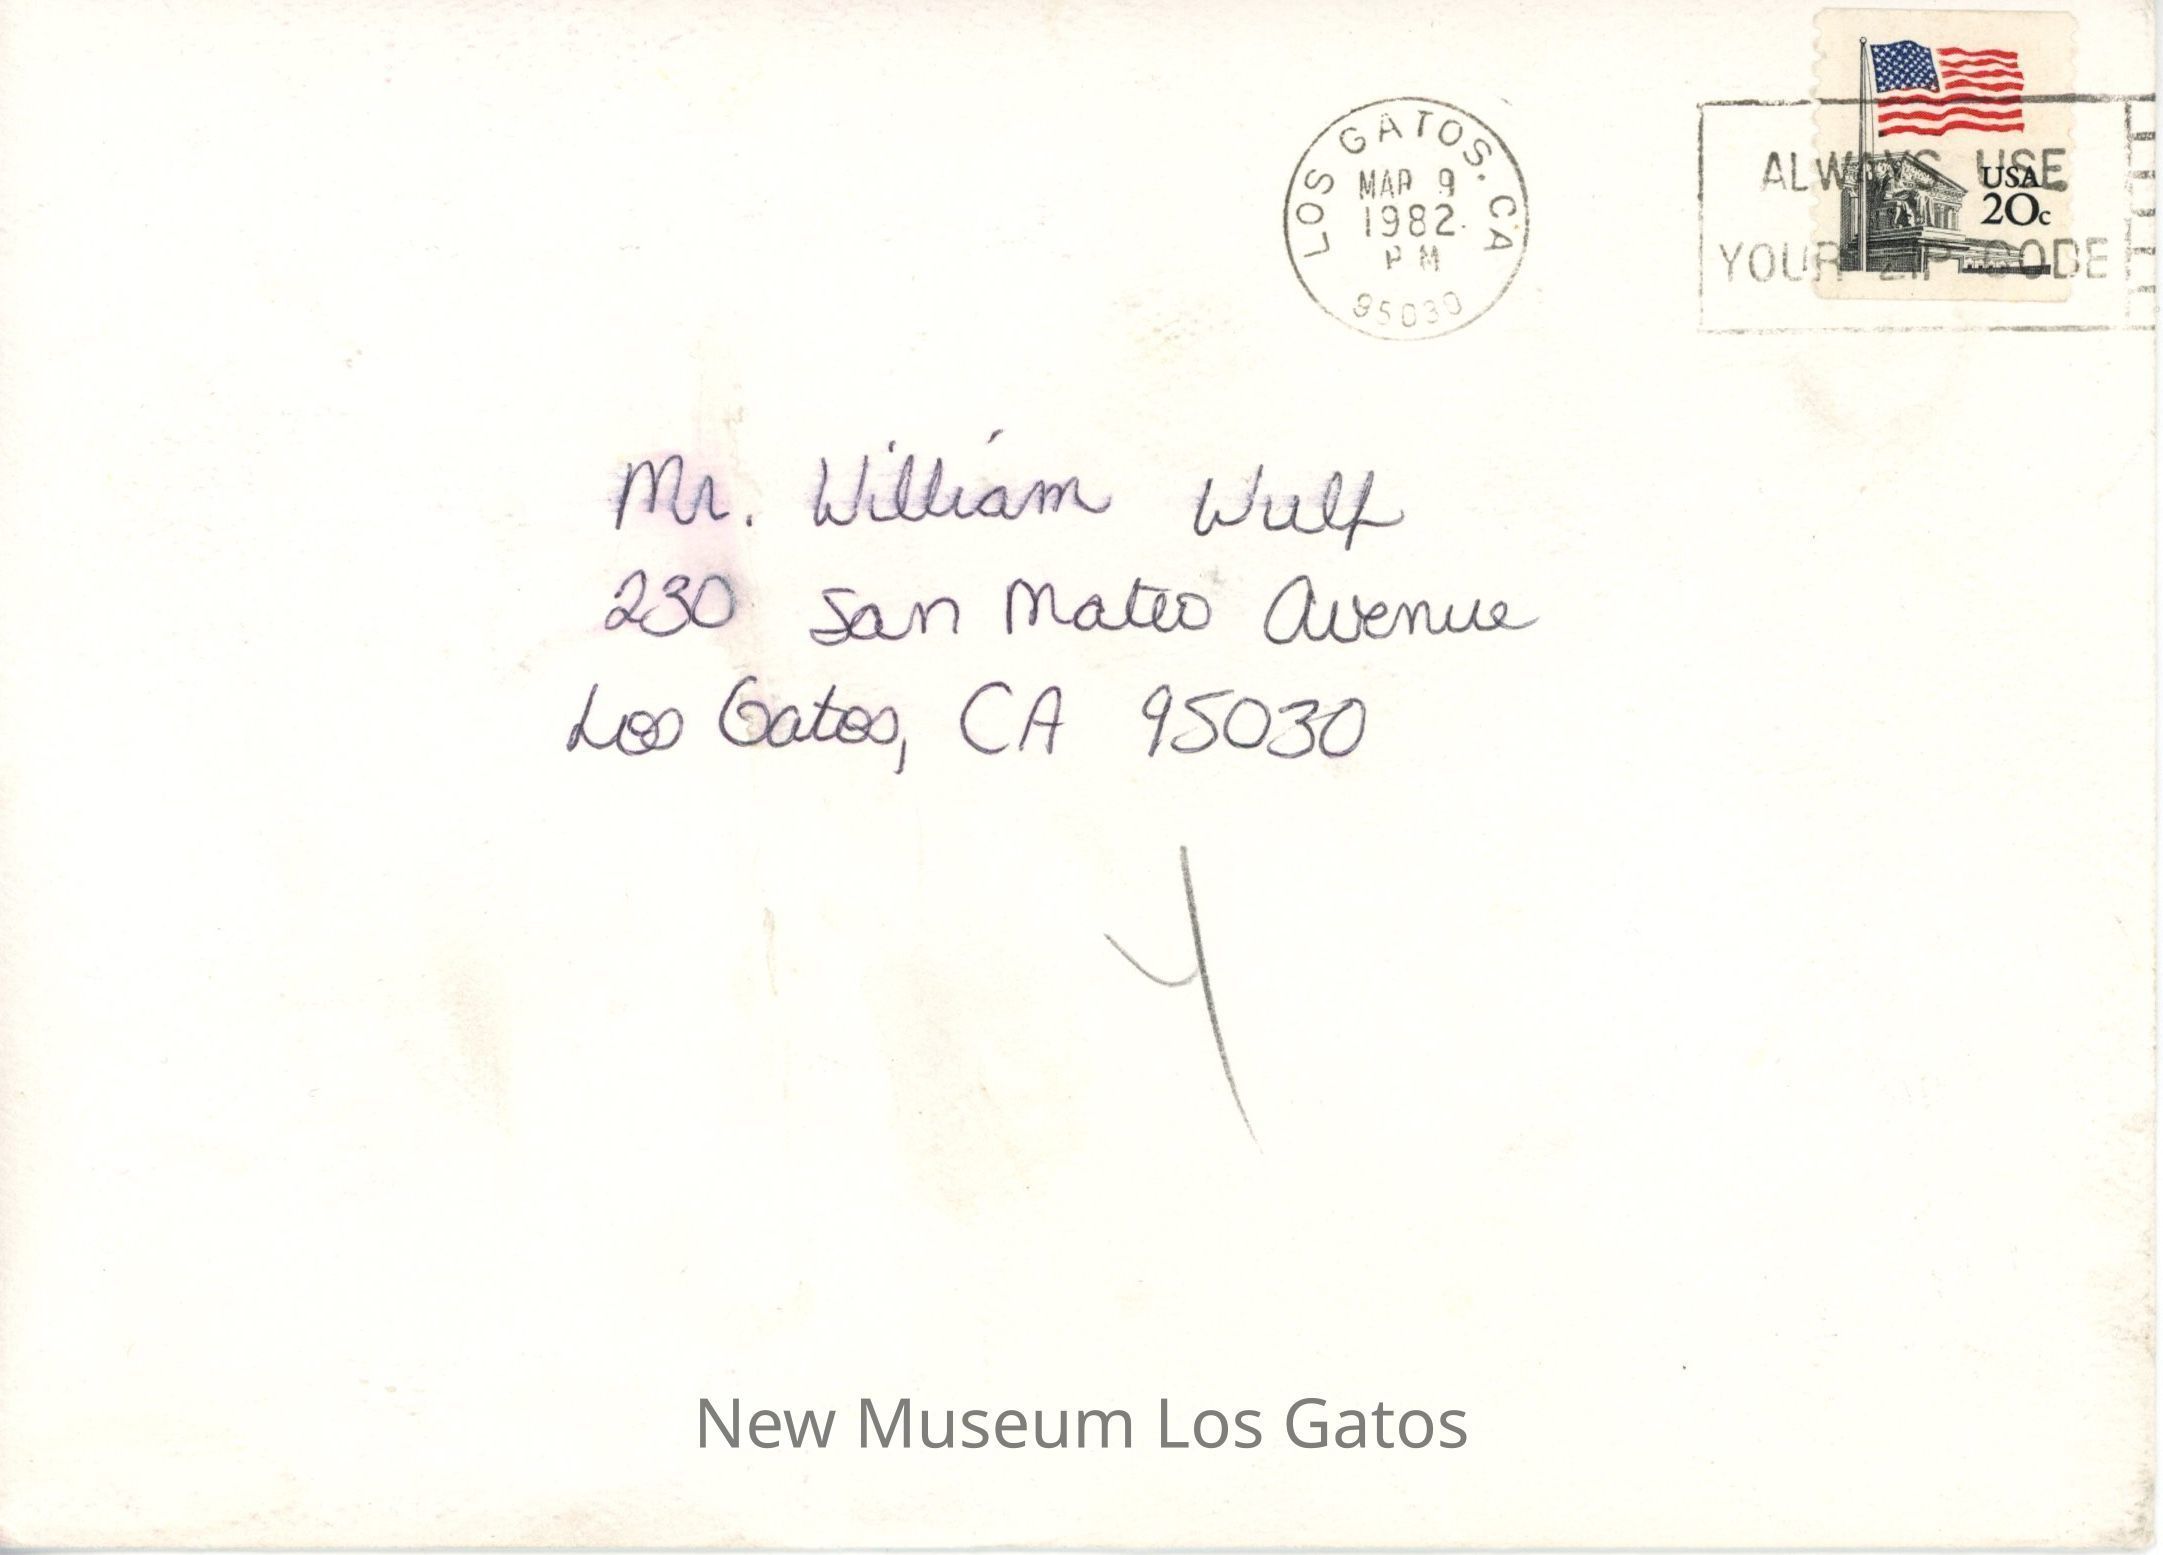 LOS GATOS. CA
MAR 9
1982
PM
95030
ALWAYS USE
YOUR ZIP CODE
USA
20c
Mr. William Wulf
230 San Mateo Avenue
Los Gatos, CA 95030
New Museum Los Gatos